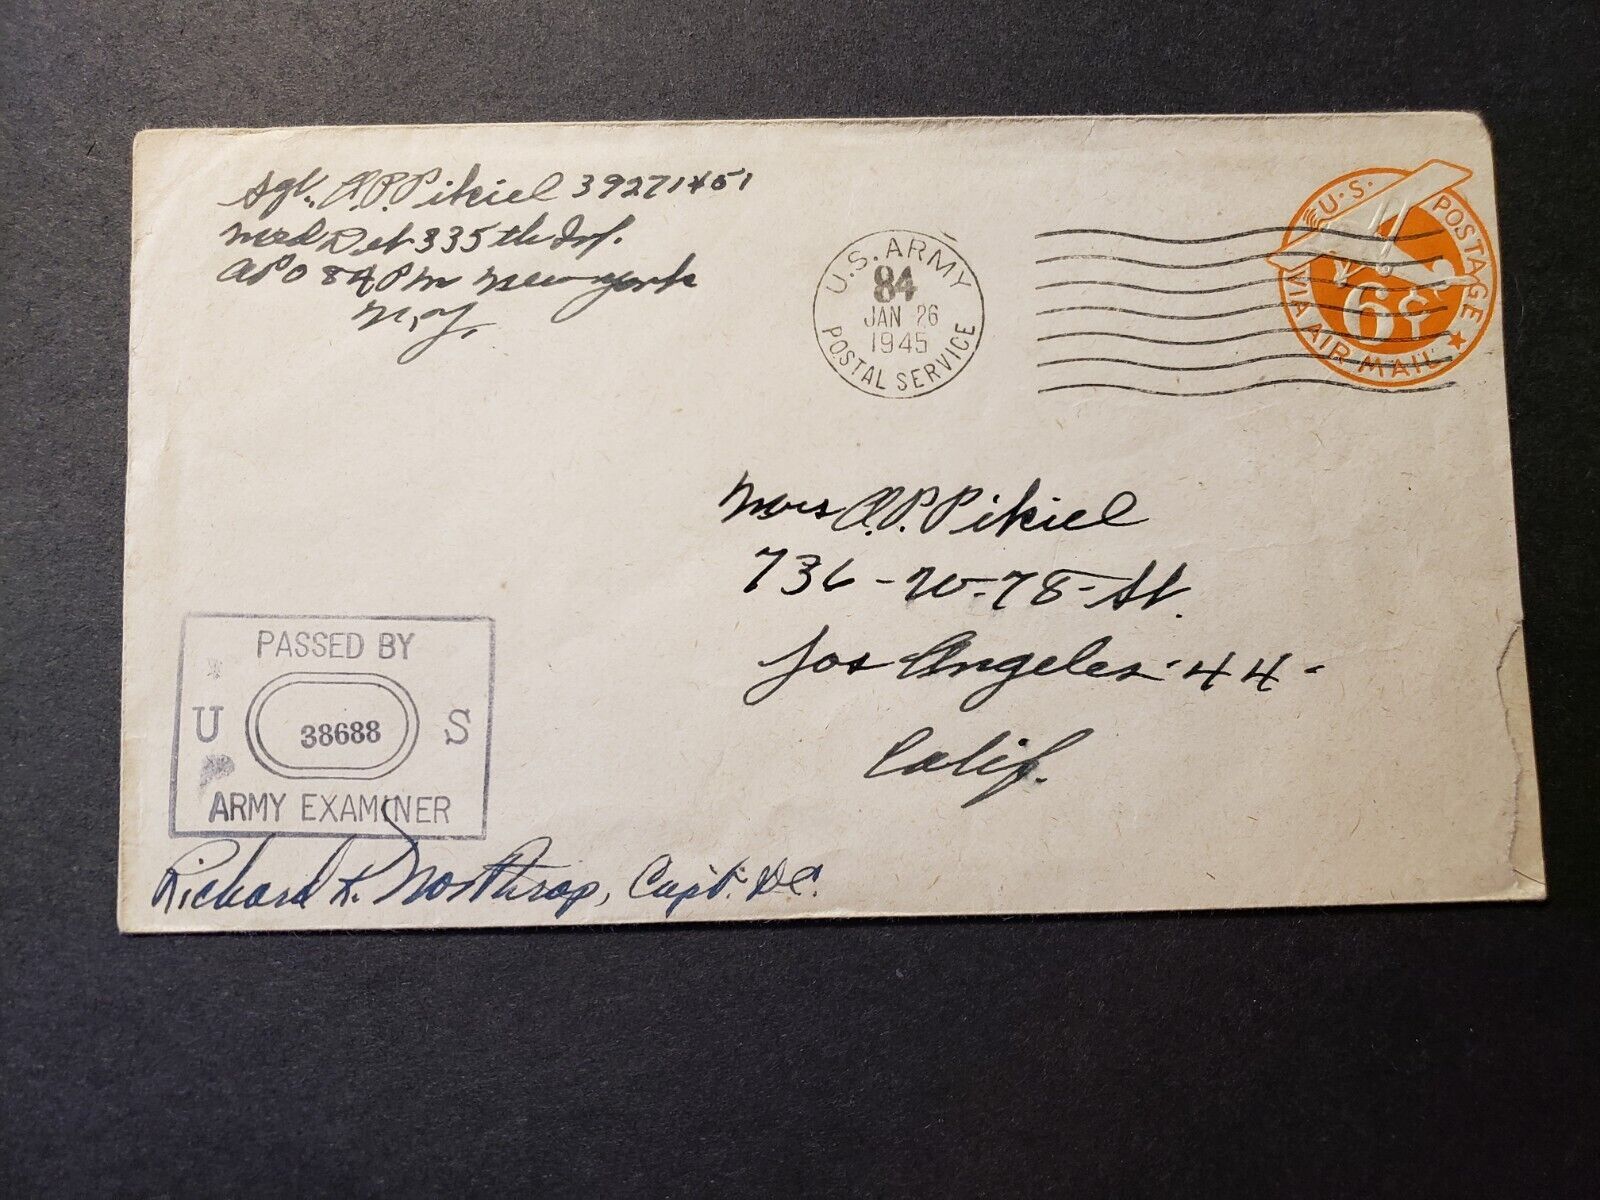 Sgt. A.P. Pikiel 39271451
Med Det 335th Inf.
APO 84 PM New York
N.Y.
U.S. ARMY
84
JAN 26
1945
POSTAL SERVICE
U.S. POSTAGE
6¢
VIA AIR MAIL
Mrs A.P. Pikiel
736-W-78-St.
Los Angeles-44-
Calif.
PASSED BY
U 38688 S
ARMY EXAMINER
Richard L. Northrop, Capt. DC.